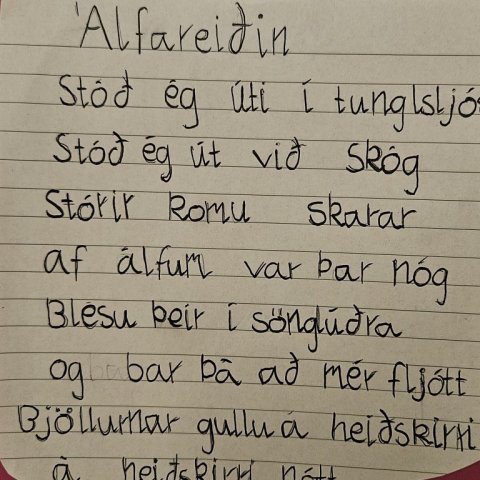 Álfareiðin
Stóð ég úti í tunglsljó
Stóð ég út við skóg
Stórir komu skarar
af álfum var þar nóg
Blésu þeir í sönglúðra
og bar þá að mér fljótt
Bjöllurnar gullu á heiðskírri
á heiðskírri nótt